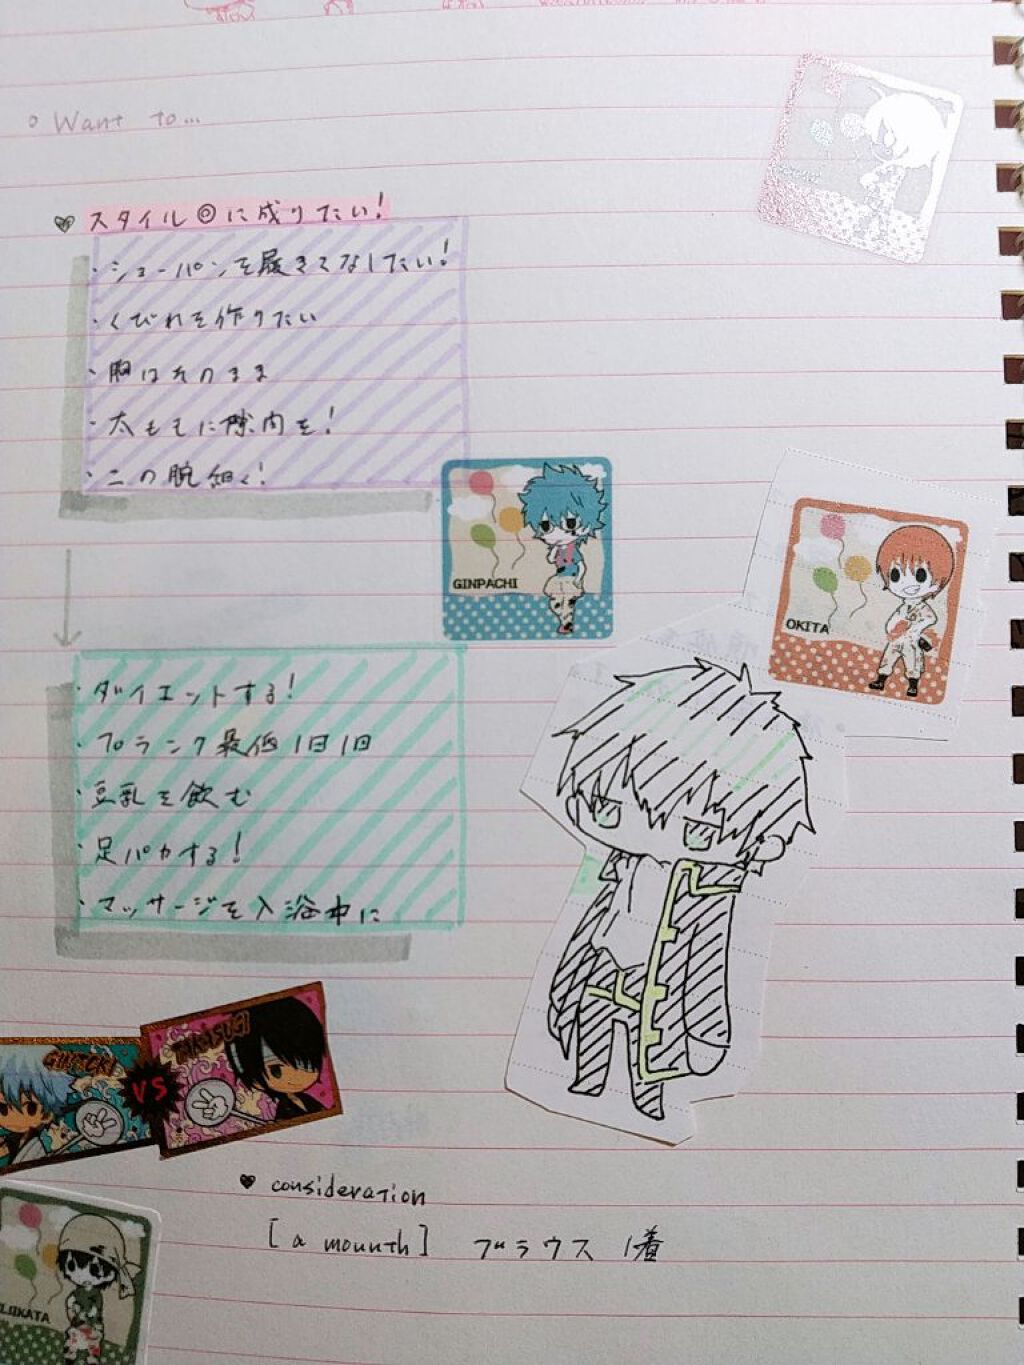 Want to...
スタイル◎に成りたい!
・ショーパンを履きこなしたい!
・くびれを作りたい
・胸はそのまま
・太ももに隙間を!
・二の腕細く!
GINPACHI
OKITA
・ダイエットする!
・プランク最低1日1回
・豆乳を飲む
・足パカする!
・マッサージを入浴中に
VS
consideration
[a mounth] ブラウス 1着